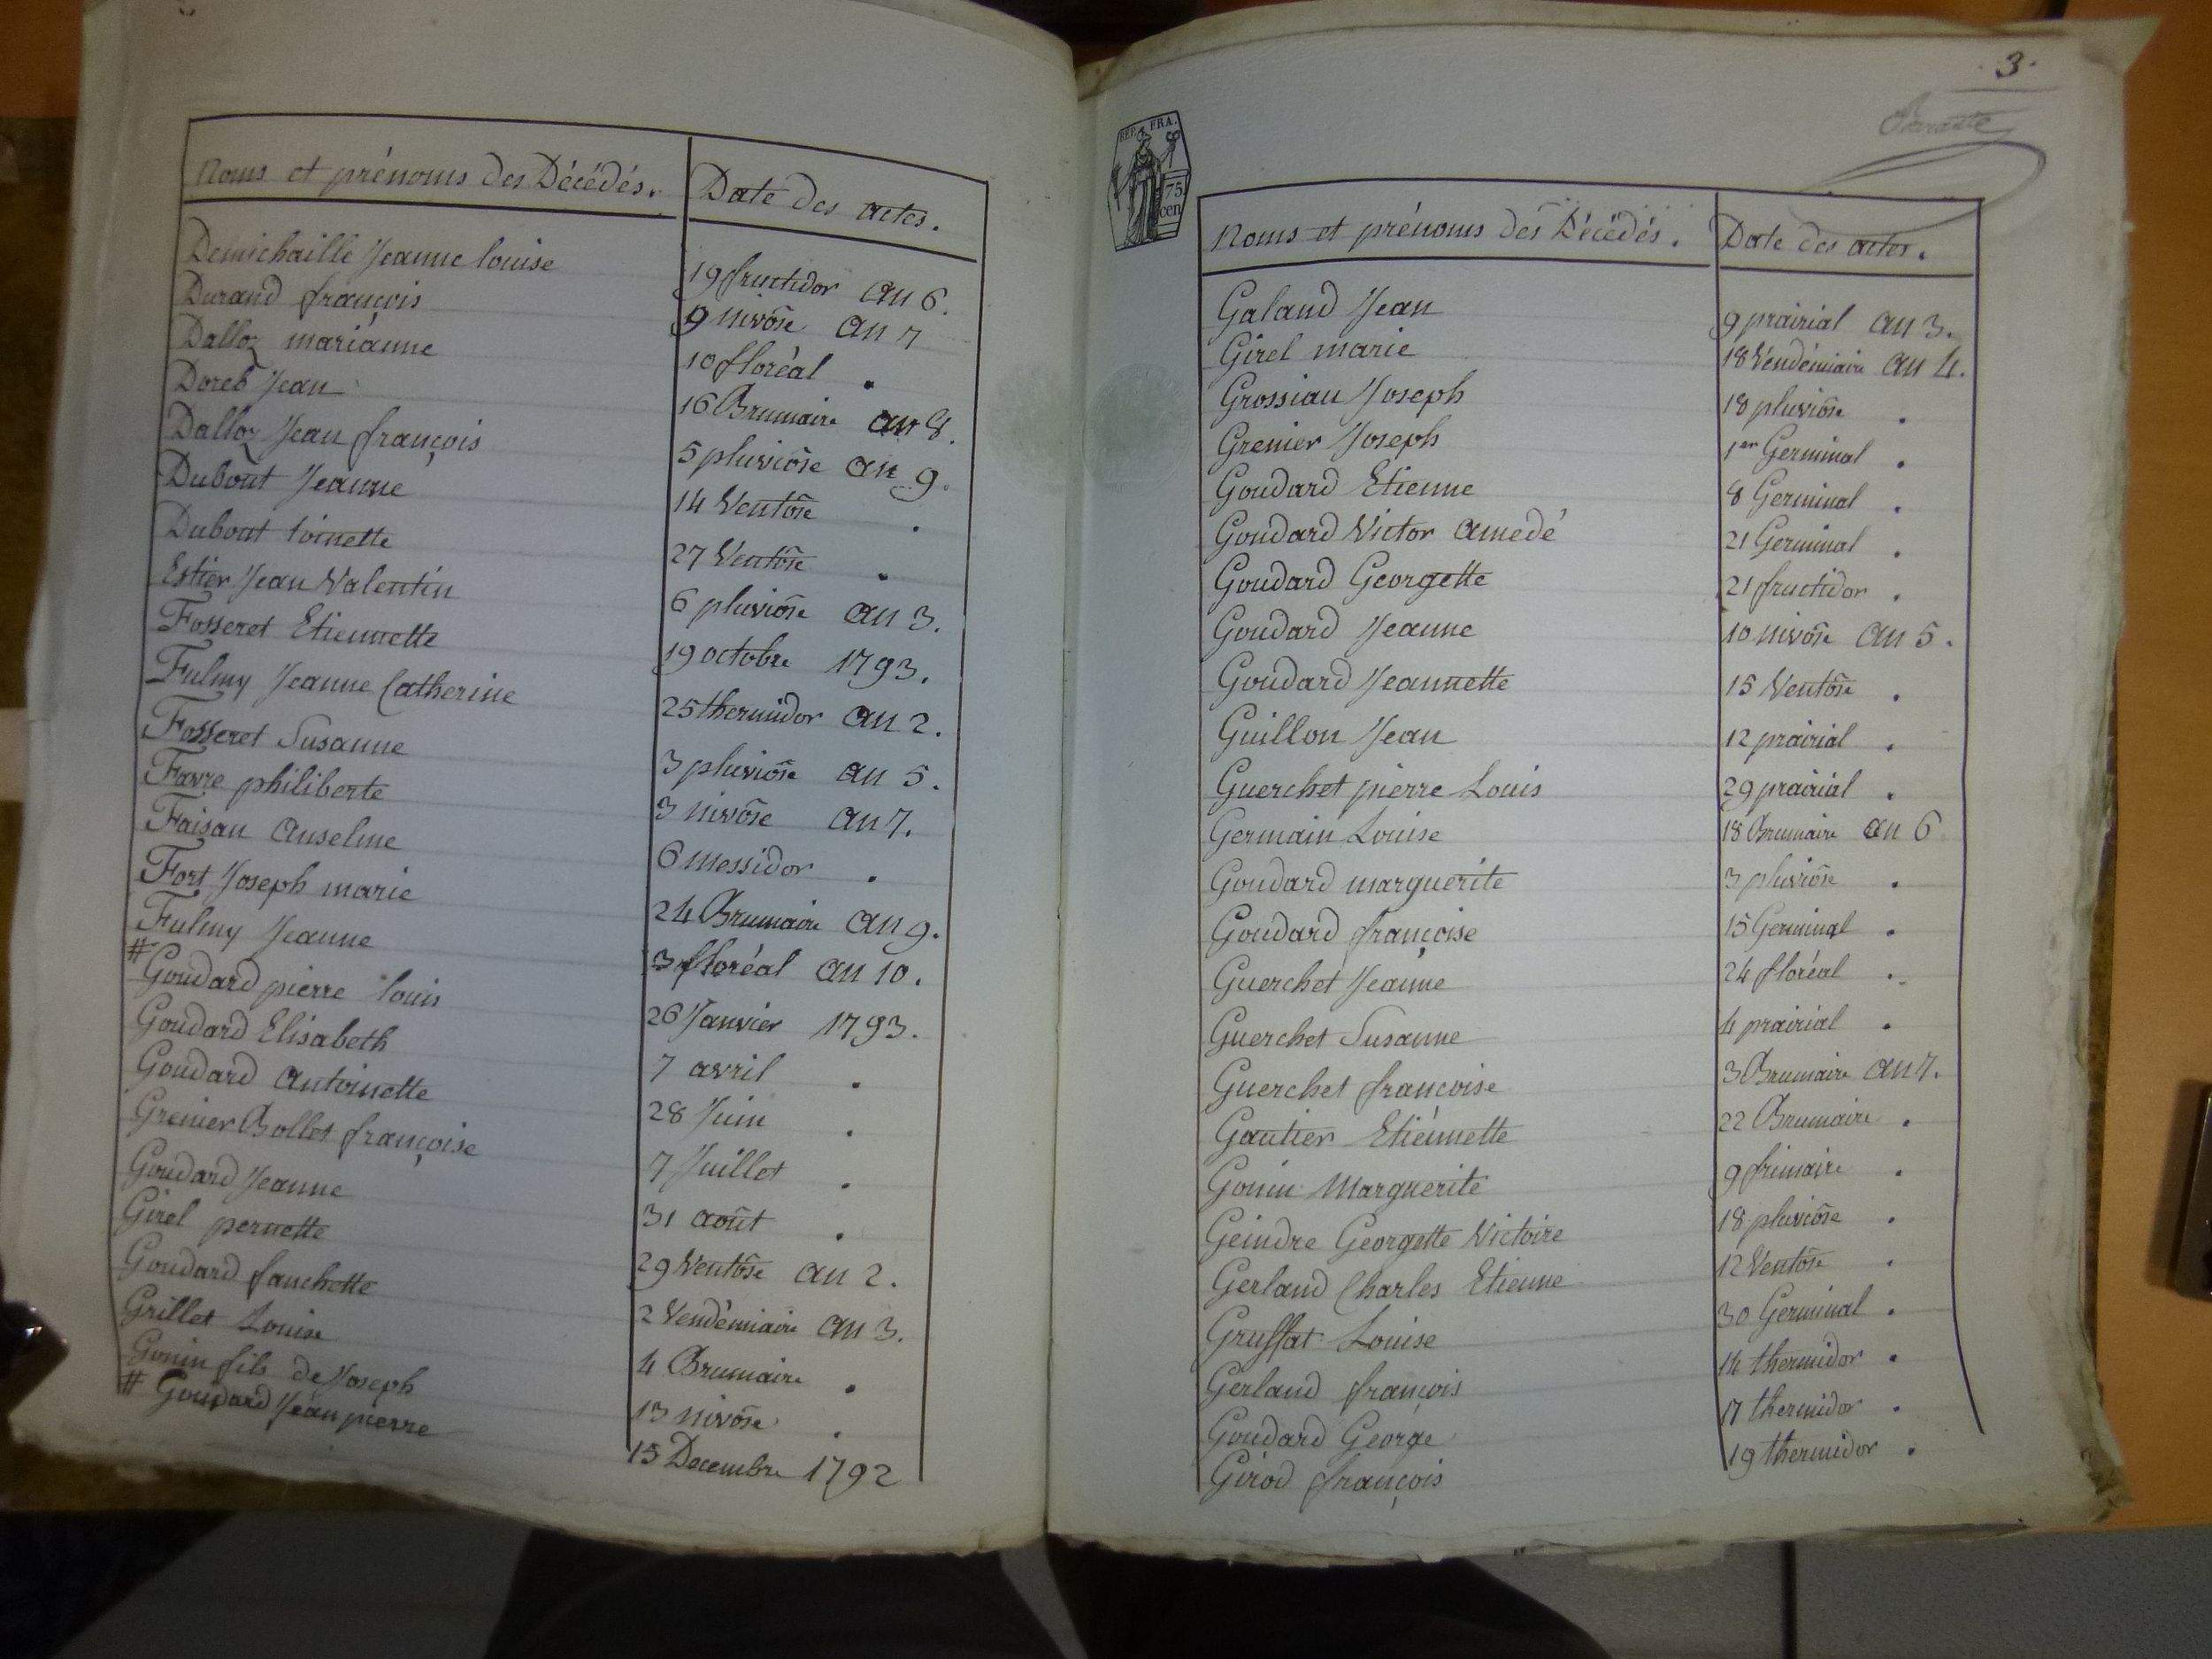 Noms et prénoms des Décédés. Date des actes.
Demichaille Jeanne Louise 19 fructidor an 6.
Durand françois 9 nivôse an 7
Dalloz mariánne 10 floréal .
Doreb Jean 16 Brumaire an 8.
Dalloz Jean françois 5 pluviôse an 9.
Dubout Jeanne 14 Ventôse .
Dubout toinette 27 Ventôse .
Estier Jean Valentin 6 pluviôse an 3.
Fosseret Etiennette 19 octobre 1793.
Fulmy Jeanne Catherine 25 thermidor an 2.
Fosseret Susanne 3 pluviôse an 5.
Favre philiberte 3 nivôse an 7.
Faisan Anselme 6 messidor .
Fort Joseph marie 24 Brumaire an 9.
Fulmy Jeanne 3 floréal an 10.
# Goudard pierre Louis 26 Janvier 1793.
Goudard Elisabeth 7 avril .
Goudard Antoinette 28 Juin .
Grenier Bollet françoise 7 Juillet .
Goudard Jeanne 31 août .
Girel pernette 29 Ventôse an 2.
Goudard fanchette 2 Vendémiaire an 3.
Grillet Louise 4 Brumaire .
Gonin fils de Joseph 13 nivôse .
# Goudard Jean pierre 15 Decembre 1792
3.
REP. FRA.
75
cen
Noms et prénoms des Décédés. Date des actes.
Galand Jean 9 prairial an 3.
Girel marie 18 Vendémiaire an 4.
Grossiau Joseph 18 pluviôse .
Grenier Joseph 1er Germinal .
Goudard Etienne 8 Germinal .
Goudard Victor Amedé 21 Germinal .
Goudard Georgette 21 fructidor .
Goudard Jeanne 10 nivôse an 5.
Goudard Jeannette 15 Ventôse .
Guillon Jean 12 prairial .
Guerchet pierre Louis 29 prairial .
Germain Louise 18 Brumaire an 6
Goudard marguerite 3 pluviôse .
Goudard françoise 15 Germinal .
Guerchet Jeanne 24 floréal .
Guerchet Susanne 4 prairial .
Guerchet françoise 3 Brumaire an 7.
Gautier Etiennette 22 Brumaire .
Gonin Marguerite 9 frimaire .
Geindre Georgette Victoire 18 pluviôse .
Gerland Charles Etienne 12 Ventôse .
Gruffat Louise 30 Germinal .
Gerland françois 14 thermidor .
Goudard George 17 thermidor .
Girod françois 19 thermidor .